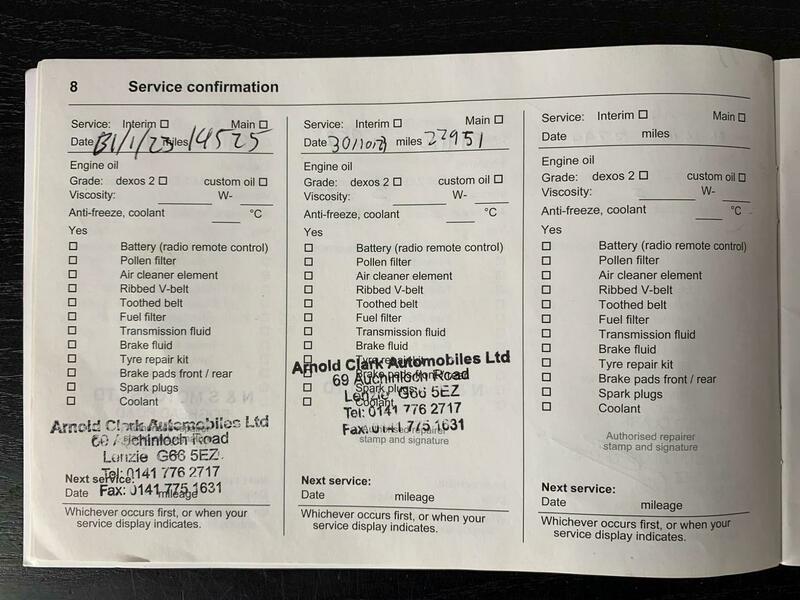 8 Service confirmation
Service: Interim Main
Date 31/1/23 miles 14525
Engine oil
Grade: dexos 2 custom oil
Viscosity: W-
Anti-freeze, coolant °C
Yes
Battery (radio remote control)
Pollen filter
Air cleaner element
Ribbed V-belt
Toothed belt
Fuel filter
Transmission fluid
Brake fluid
Tyre repair kit
Brake pads front / rear
Spark plugs
Coolant
Arnold Clark Automobiles Ltd
69 Auchinloch Road
Lenzie G66 5EZ
Tel: 0141 776 2717
Fax: 0141 775 1631
Next service:
Date mileage
Whichever occurs first, or when your
service display indicates.
Service: Interim Main
Date 30/10/23 miles 22951
Engine oil
Grade: dexos 2 custom oil
Viscosity: W-
Anti-freeze, coolant °C
Yes
Battery (radio remote control)
Pollen filter
Air cleaner element
Ribbed V-belt
Toothed belt
Fuel filter
Transmission fluid
Brake fluid
Tyre repair kit
Arnold Clark Automobiles Ltd
Brake pads front / rear
69 Auchinloch Road
Spark plugs
Lenzie G66 5EZ
Coolant
Tel: 0141 776 2717
Fax: 0141 775 1631
Authorised repairer
stamp and signature
Next service:
Date mileage
Whichever occurs first, or when your
service display indicates.
Service: Interim Main
Date miles
Engine oil
Grade: dexos 2 custom oil
Viscosity: W-
Anti-freeze, coolant °C
Yes
Battery (radio remote control)
Pollen filter
Air cleaner element
Ribbed V-belt
Toothed belt
Fuel filter
Transmission fluid
Brake fluid
Tyre repair kit
Brake pads front / rear
Spark plugs
Coolant
Authorised repairer
stamp and signature
Next service:
Date mileage
Whichever occurs first, or when your
service display indicates.